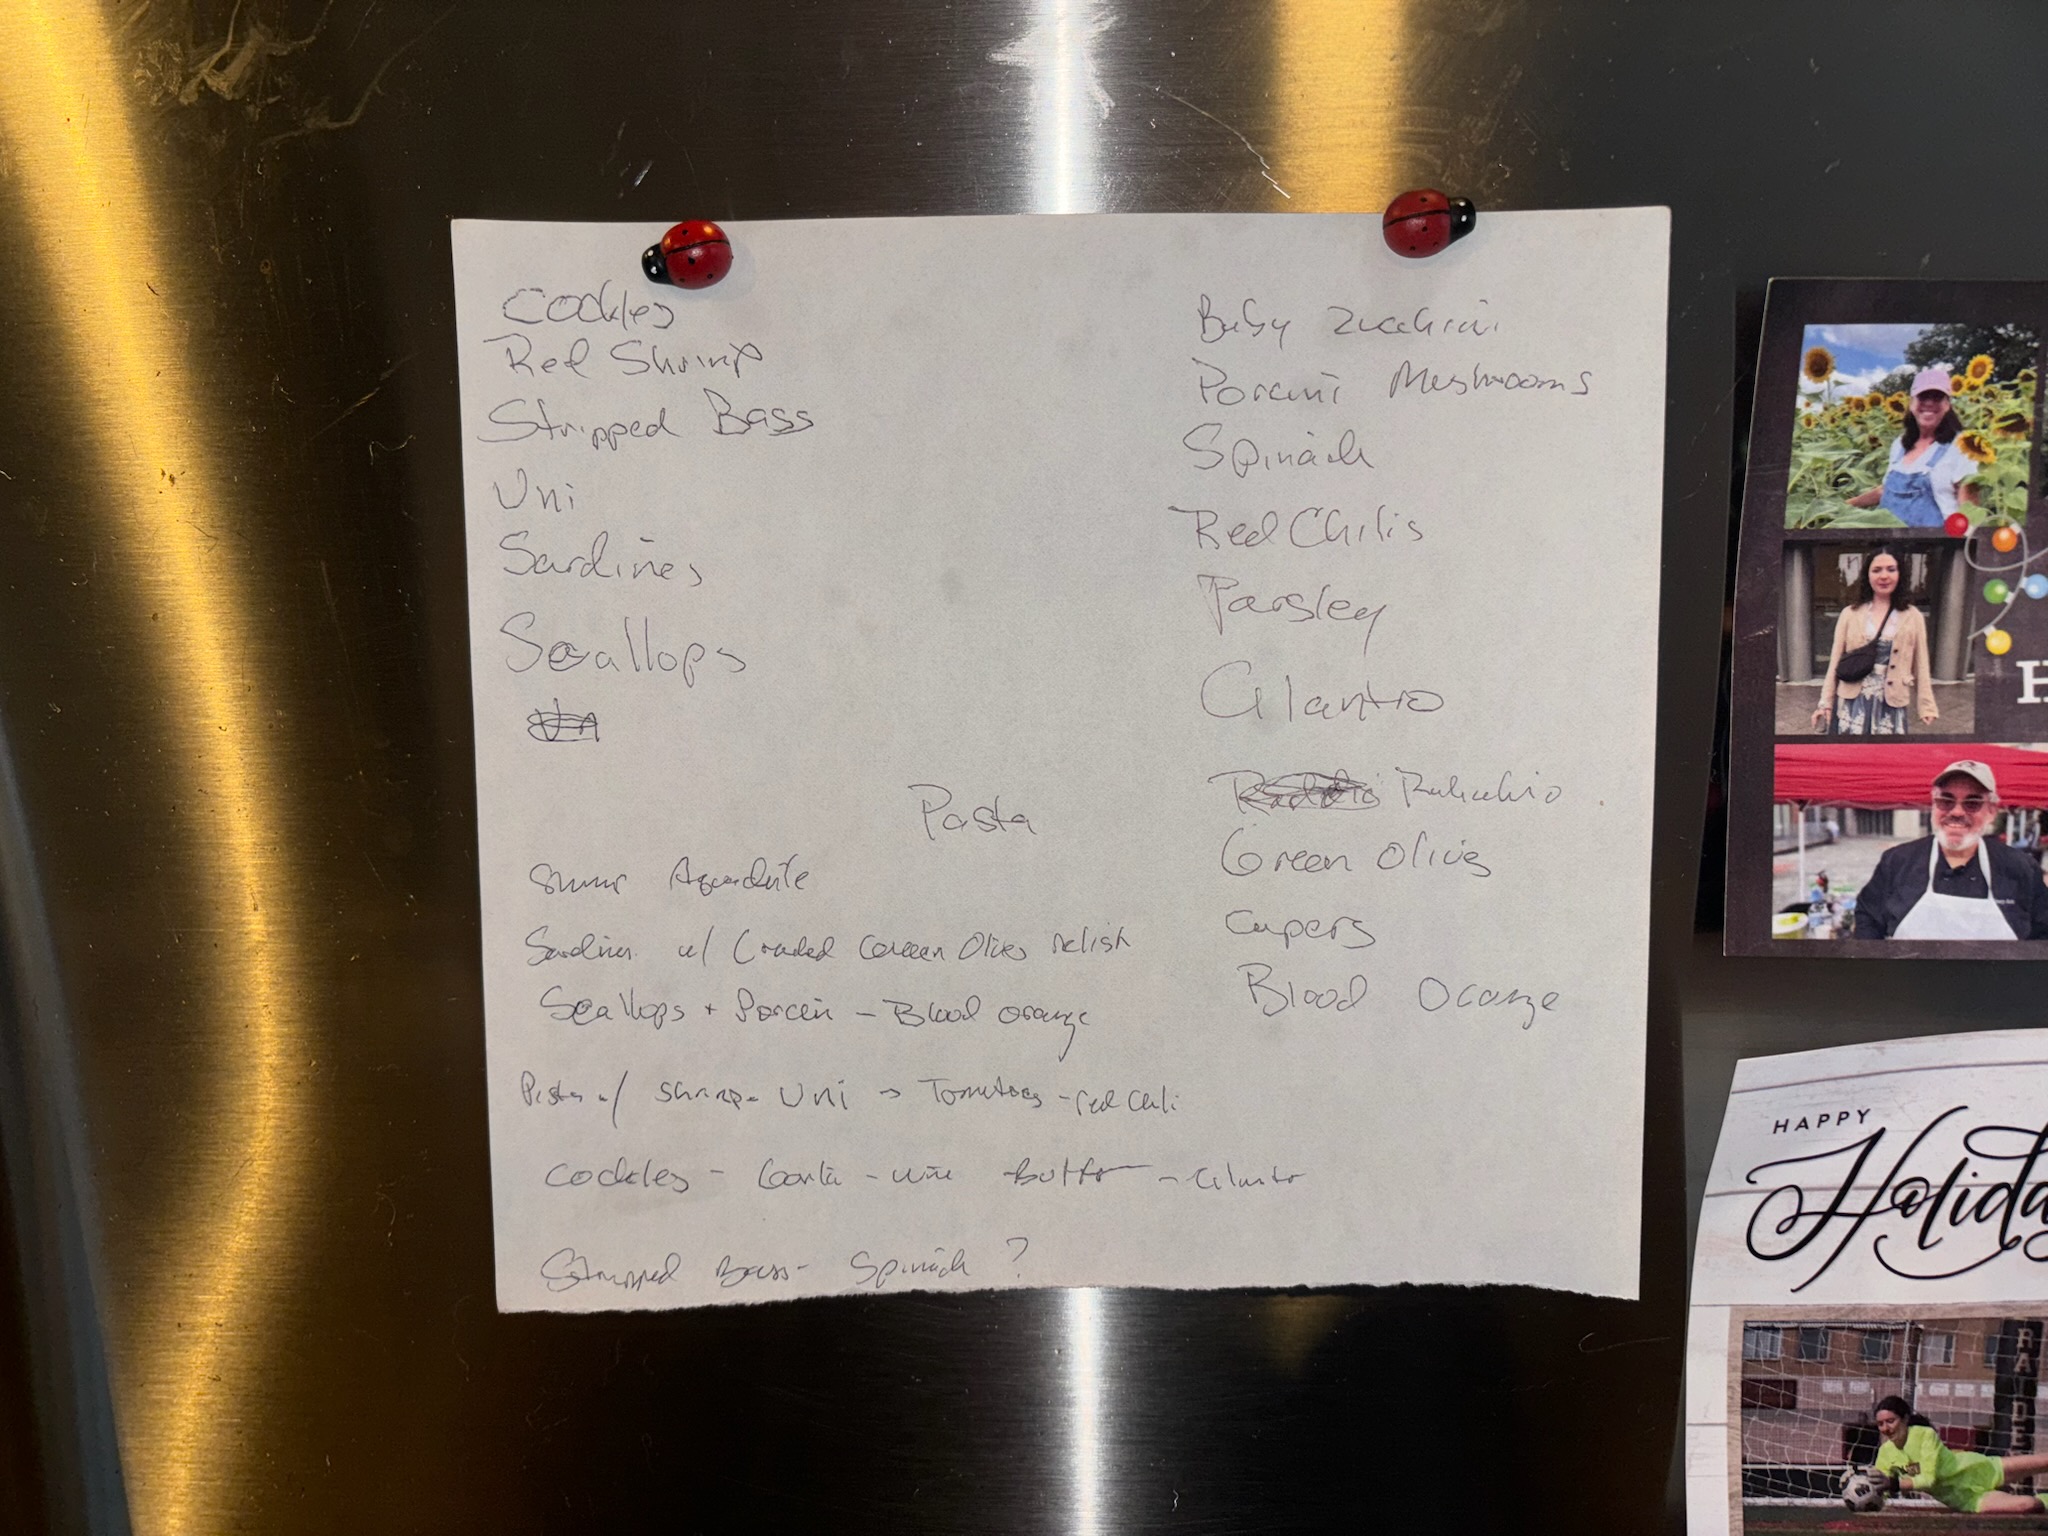 Cockles
Red Shrimp
Stripped Bass
Uni
Sardines
Scallops
Baby Zucchini
Porcini Mushrooms
Spinach
Red Chilis
Parsley
Cilantro
Green Olives
Capers
Blood Orange
Pasta
Sardines w/ Green Olives relish
Scallops + Porcini - Blood orange
Pasta w/ Shrimp - Uni -> Tomatoes - red chili
Cockles - Garlic - wine - Butter - Cilantro
Stripped Bass - Spinach ?
H
HAPPY
Holida